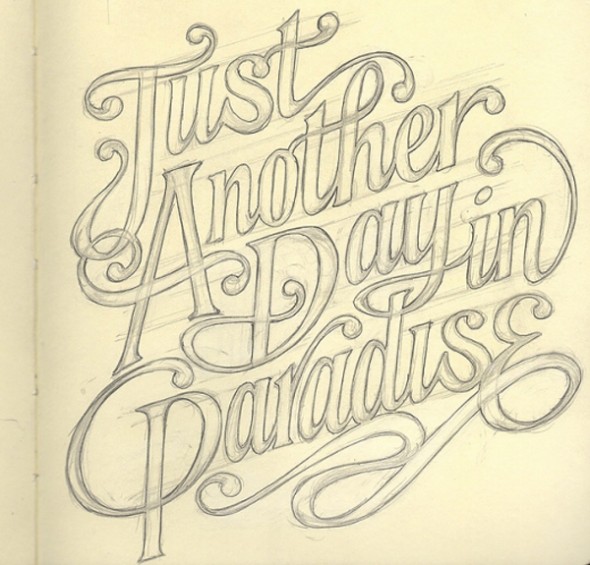 Just
Another
Day in
Paradise